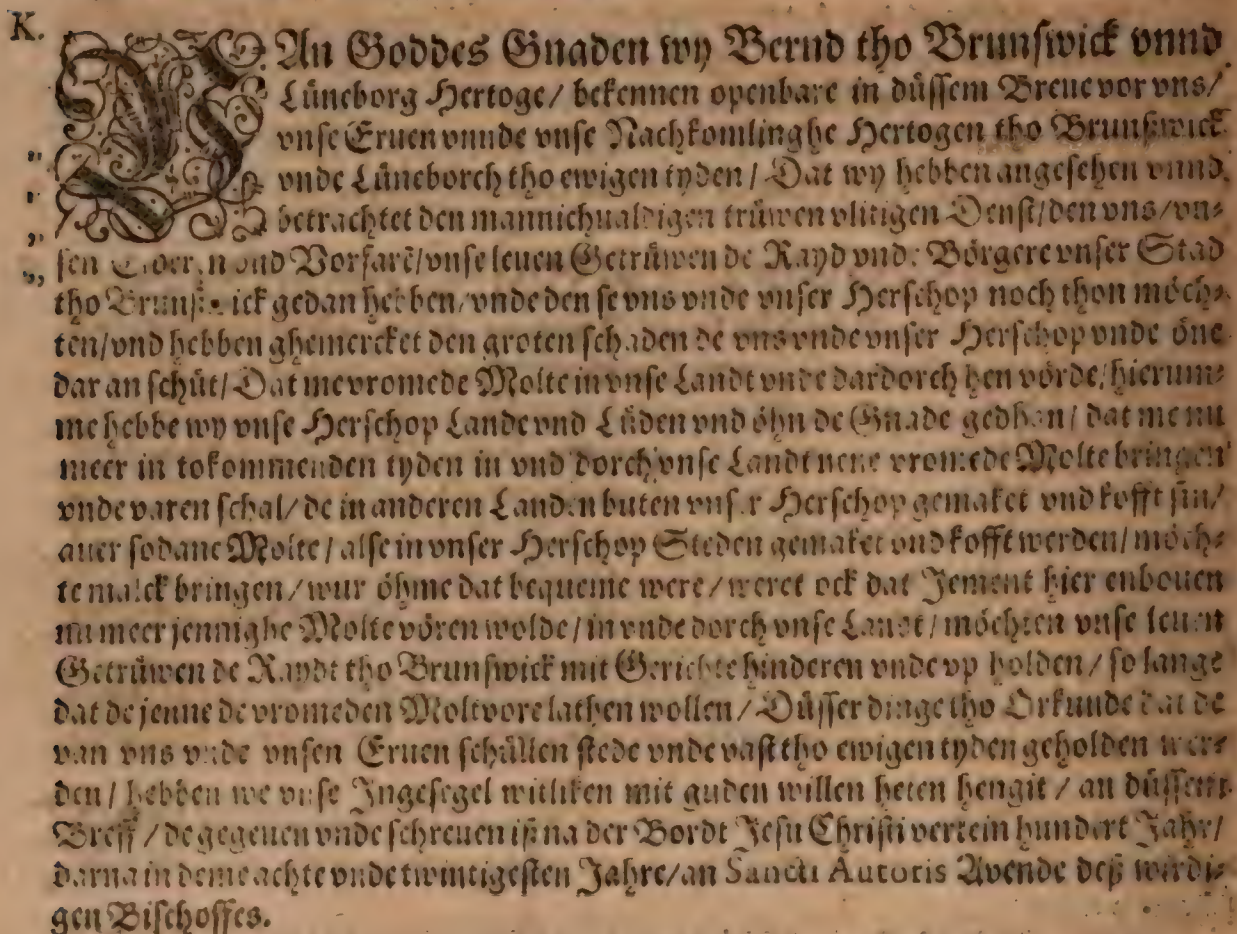 K.
VAn Goddes Gnaden wy Bernd tho Brunswick vnnd
Lüneborg Hertoge/ bekennen openbare in düssem Breue vor vns/
vnse Eruen vnnde vnse Nachkomlinghe Hertogen tho Brunswick
vnde Lüneborch tho ewigen tyden/ Dat wy hebben angesehen vnnd
betrachtet den mannichualdigen trüwen vlitigen Denst/ den vns/ vn⸗
sen vnd Vorfarē/ vnse leuen Getrüwen de Rayd vnd Börgere vnser Stad
tho Brunswick gedan hebben/ vnde den se vns vnde vnser Herschop noch thon möch⸗
ten/ vnd hebben ghemercket den groten schaden de vns vnde vnser Herschop vnde öne
dar an schüt/ Dat me vromede Molte in vnse Landt vnde dardorch hen vörde/ hierum⸗
me hebbe wy vnse Herschop Lande vnd Lüden vnd öhn de Gnade gedhan/ dat me nu
meer in tokommenden tyden in vnd dorch vnse Landt nene vromede Molte bringen
vnde varen schal/ de in anderen Landen buten vnser Herschop gemaket vnd kofft sin/
auer sodane Molte/ alse in vnser Herschop Steden gemaket vnd kofft werden/ möch⸗
te malck bringen/ wur öhme dat bequeme were/ weret ock dat Jement hier enbouen
nu meer jennighe Molte vören wolde/ in vnde dorch vnse Landt/ möchten vnse leuen
Getrüwen de Raydt tho Brunswick mit Gerichte hinderen vnde vp holden/ so lange
dat de jenne de vromeden Moltvore lathen wollen/ Düsser dinge tho Orkunde dat de
van vns vnde vnsen Eruen schüllen stede vnde vast tho ewigen tyden geholden wer⸗
den/ hebben we vnse Ingesegel witliken mit guden willen heten hengit/ an düssem
Breff/ de gegeuen vnde schreuen iß na der Bordt Jesu Christi vertein hundert Jahr/
darna in deme achte vnde twintigesten Jahre/ an Sancti Autoris Avende deß wirdi⸗
gen Bischoffes.